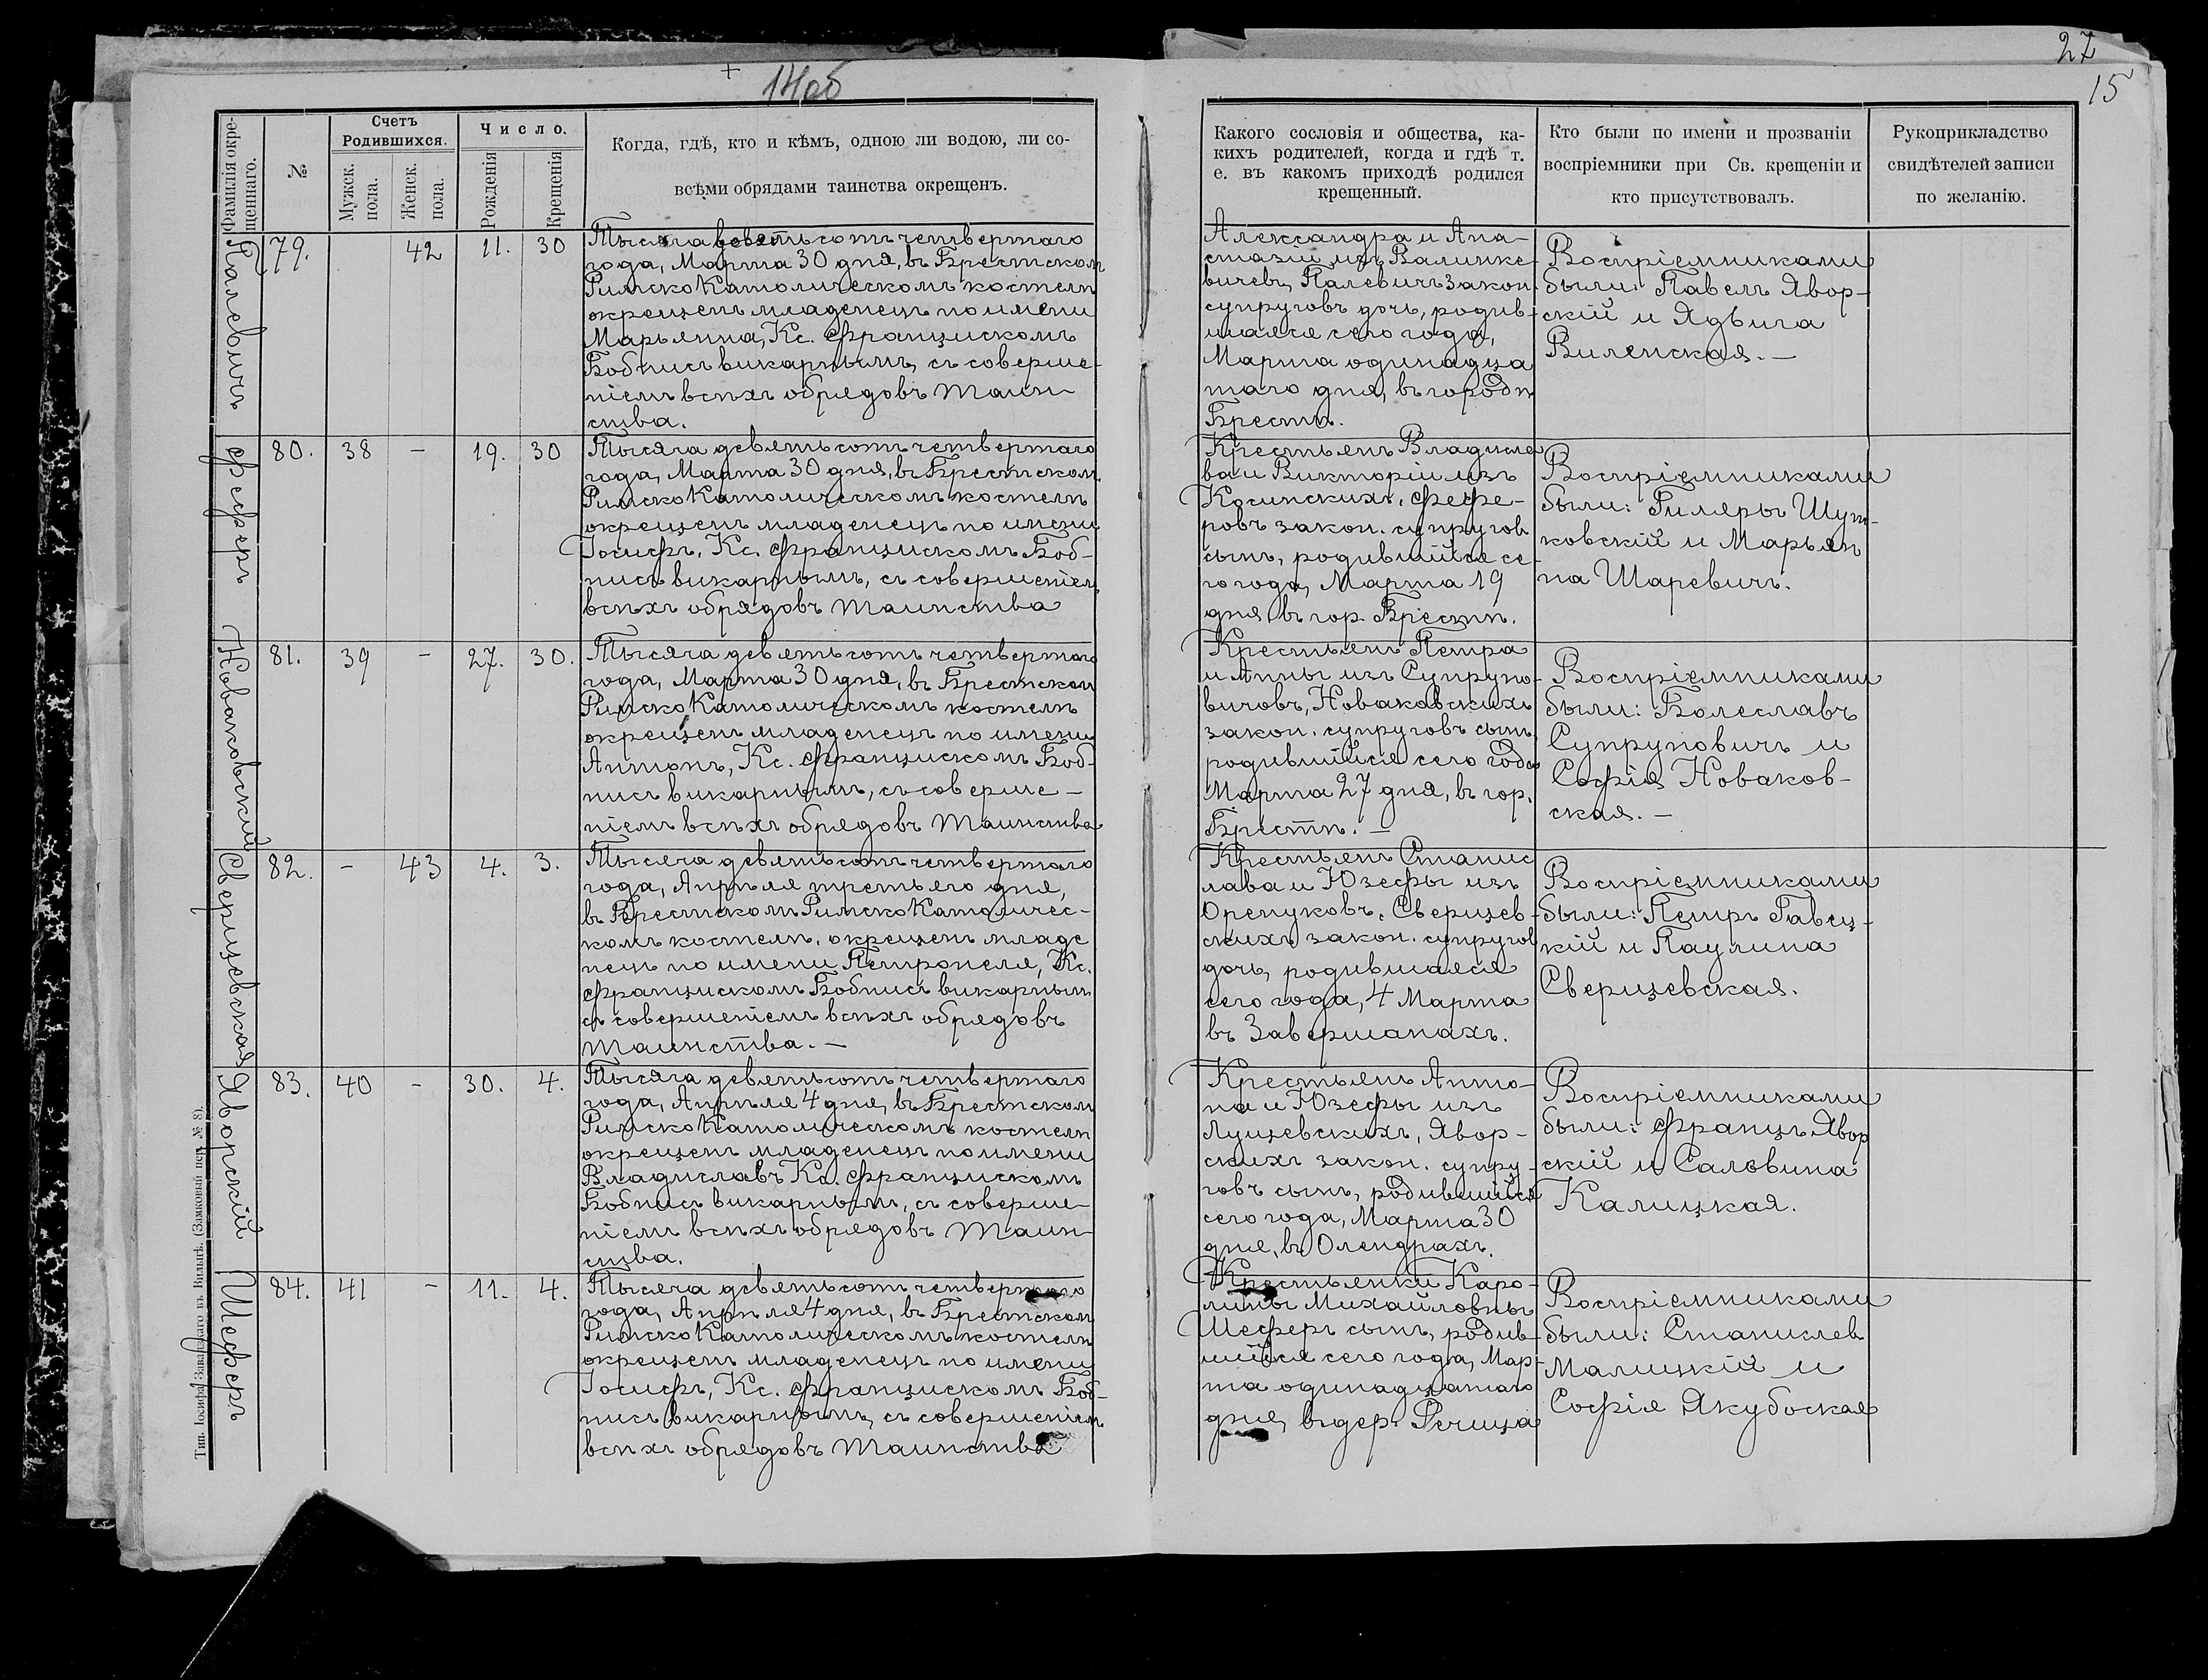 27
15
14об
Фамилія окре-
щеннаго.
№
Счетъ
Родившихся.
Мужск.
пола.
Женск.
пола.
Число.
Рожденія
Крещенія
Когда, гдѣ, кто и кѣмъ, одною ли водою, ли со-
всѣми обрядами таинства окрещенъ.
Какого сословія и общества, ка-
кихъ родителей, когда и гдѣ т.
е. въ какомъ приходѣ родился
крещенный.
Кто были по имени и прозваніи
воспріемники при Св. крещеніи и
кто присутствовалъ.
Рукоприкладство
свидѣтелей записи
по желанію.
Палевичъ
79.
42
11.
30
Тысяча девятьсотъ четвертаго
года, Марта 30 дня, въ Брестском
Римско Католическомъ костелѣ
окрещенъ младенецъ по имени
Марьянна, Кс. Францискомъ
Бобнисъ викарнымъ, съ соверше-
ніемъ всѣхъ обрядовъ Таин-
ства.
Александра и Ана-
стазіи изъ Валинке-
вичевъ, Палевичъ закон.
супруговъ дочь, родив-
шаяся сего года,
Марта одинадца
таго дня, въ городѣ
Брестѣ.
Воспріемниками
были: Павелъ Явор-
скій и Ядвига
Виленская. —
Феферъ
80.
38
—
19.
30
Тысяча девятьсотъ четвертаго
года, Марта 30 дня, въ Брестском
Римско Католическомъ костелѣ
окрещенъ младенецъ по имени
Іосифъ, Кс. Францискомъ Боб-
нисъ викарнымъ, съ совершеніем
всѣхъ обрядовъ Таинства
Крестьянъ Владисла
ва и Викторіи изъ
Косинскихъ, Фефе-
ровъ закон. супругов
сынъ, родившійся се-
го года, Марта 19
дня, въ гор. Брестѣ.
Воспріемниками
были: Гиляры Шут-
ковскій и Марьян
на Шаревичъ.
Новаковскій
81.
39
—
27.
30.
Тысяча девятьсотъ четвертаго
года, Марта 30 дня, въ Брестском
Римско Католическомъ костелѣ
окрещенъ младенецъ по имени
Антонъ, Кс. Францискомъ Боб-
нисъ викарнымъ, съ соверше-
ніемъ всѣхъ обрядовъ Таинства
Крестьянъ Петра
и Анны изъ Супруно-
вичовъ, Новаковскихъ
закон. супруговъ сынъ,
родившійся сего года
Марта 27 дня, въ гор.
Брестѣ. —
Воспріемниками
были: Болеславъ
Супруновичъ и
Софія Новаков-
ская. —
Сверщевская
82.
—
43
4.
3.
Тысяча девятьсотъ четвертаго
года, Апрѣля третьяго дня,
въ Брестскомъ Римско Католичес-
комъ костелѣ, окрещенъ младе
нецъ по имени Петронеля, Кс.
Францискомъ Бобнисъ викарным
съ совершеніемъ всѣхъ обрядовъ
Таинства. —
Крестьянъ Станис
лава и Юзефы изъ
Оренуковъ, Сверщев-
скихъ закон. супругов
дочь, родившаяся
сего года, 4 Марта
въ Завершанахъ.
Воспріемниками
были: Петръ Гавец-
кій и Паулина
Сверщевская.
Яворскій
83.
40
—
30.
4.
Тысяча девятьсотъ четвертаго
года, Апрѣля 4 дня, въ Брестском
Римско Католическомъ костелѣ
окрещенъ младенецъ по имени
Владиславъ Кс. Францискомъ
Бобнисъ викарнымъ, съ соверше-
ніемъ всѣхъ обрядовъ Таин-
ства.
Крестьянъ Анто-
на и Юзефы изъ
Лущевскихъ, Явор-
скихъ закон. супру-
говъ сынъ, родившійся
сего года, Марта 30
дня, въ Олендрахъ.
Воспріемниками
были: Францъ Явор
скій и Салевина
Калицкая.
Шеферъ
84.
41
—
11.
4.
Тысяча девятьсотъ четвертаго
года, Апрѣля 4 дня, въ Брестском
Римско Католическомъ костелѣ
окрещенъ младенецъ по имени
Іосифъ, Кс. Францискомъ Боб-
нисъ викарнымъ, съ совершеніем
всѣхъ обрядовъ Таинства
Крестьянки Каро-
лины Михайловны
Шеферъ сынъ, родив-
шійся сего года, Мар-
та одинадцатаго
дня, въ дер. Речица
Воспріемниками
были: Станислав
Малицкій и
Софія Якубоская
Тип. Іосифа Завадскаго въ Вильнѣ. (Замковый пер. № 8).